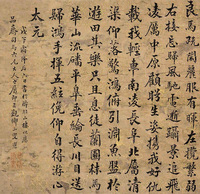 良馬既閑麗服有暉左攬繁弱
右接忘歸風馳電逝躡景追飛
凌厲中原顧盼生姿攜我好仇
載我輕車南凌長阜北厲清
渠仰落驚鴻俯引淵魚盤于
遊田其樂只且息徒蘭圃秣馬
華山流磻平皋垂綸長川目送
歸鴻手揮五絃俯仰自得游心
太元